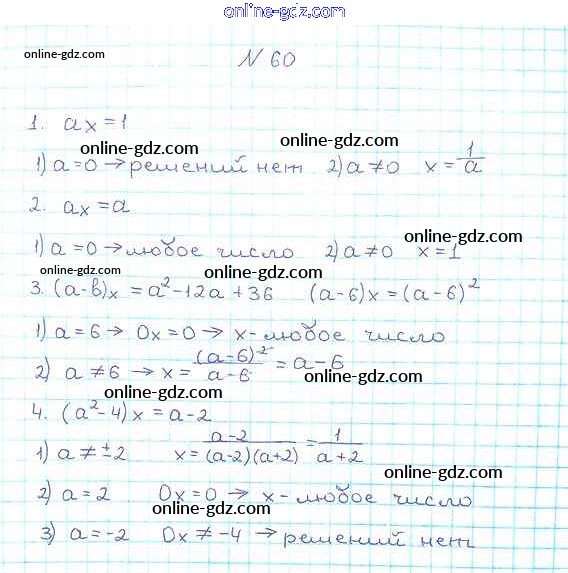 online-gdz.com
online-gdz.com
N 60
1. ax = 1
online-gdz.com online-gdz.com
1) a = 0 → решений нет 2) a ≠ 0 x = 1/a
2. ax = a
online-gdz.com
1) a = 0 → любое число 2) a ≠ 0 x = 1
online-gdz.com online-gdz.com
3. (a-в)x = a² - 12a + 36 (a-6)x = (a-6)²
online-gdz.com
1) a = 6 → 0x = 0 → x - любое число
2) a ≠ 6 → x = (a-6)²/a-6 = a-6
online-gdz.com
online-gdz.com
online-gdz.com
4. (a²-4)x = a-2
1) a ≠ ±2 x = a-2/(a-2)(a+2) = 1/a+2
online-gdz.com
2) a = 2 0x = 0 → x - любое число
online-gdz.com
3) a = -2 0x ≠ -4 → решений нет